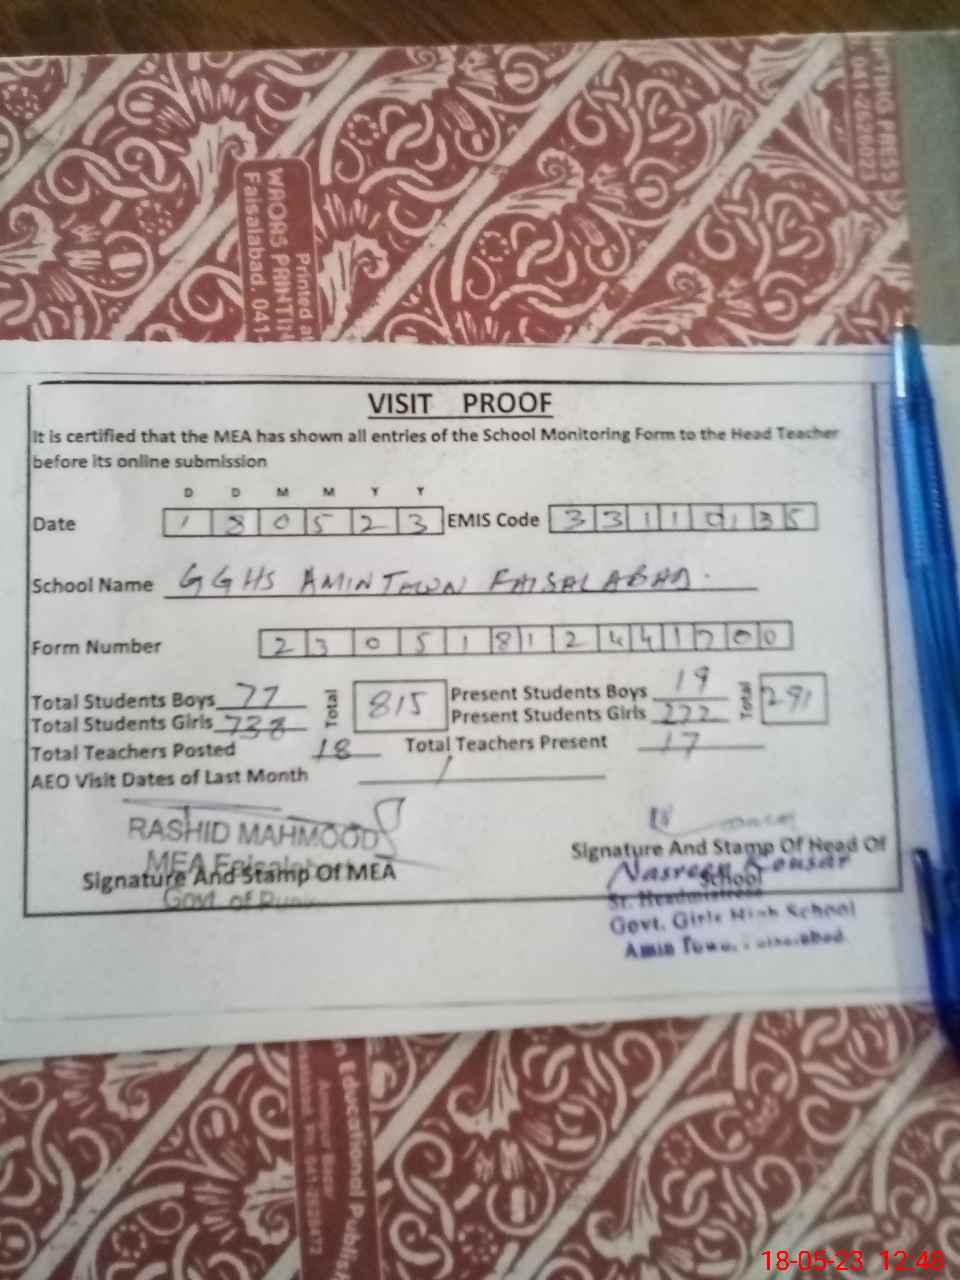 TING PRESS
041-2626023
WAORS PRINTIN
Faisalabad. 041-
Printed at
VISIT PROOF
It is certified that the MEA has shown all entries of the School Monitoring Form to the Head Teacher
before its online submission
D D M M Y Y
Date 1 8 0 5 2 3 EMIS Code 3 3 1 1 0 1 3 5
School Name GGHS AMIN TOWN FAISALABAD.
Form Number 2 3 0 5 1 8 1 2 4 4 1 7 0 0
Total Students Boys 77 Total 815 Present Students Boys 19 Total 291
Total Students Girls 738 Present Students Girls 272
Total Teachers Posted 18 Total Teachers Present 17
AEO Visit Dates of Last Month /
RASHID MAHMOOD
MEA Faisalabad
Signature And Stamp Of MEA
Govt. of
Signature And Stamp Of Head Of
School
Nasreen Kousar
Sr. Headmistress
Govt. Girls High School
Amin Town, Faisalabad.
Educational Publi
18-05-23 12:48